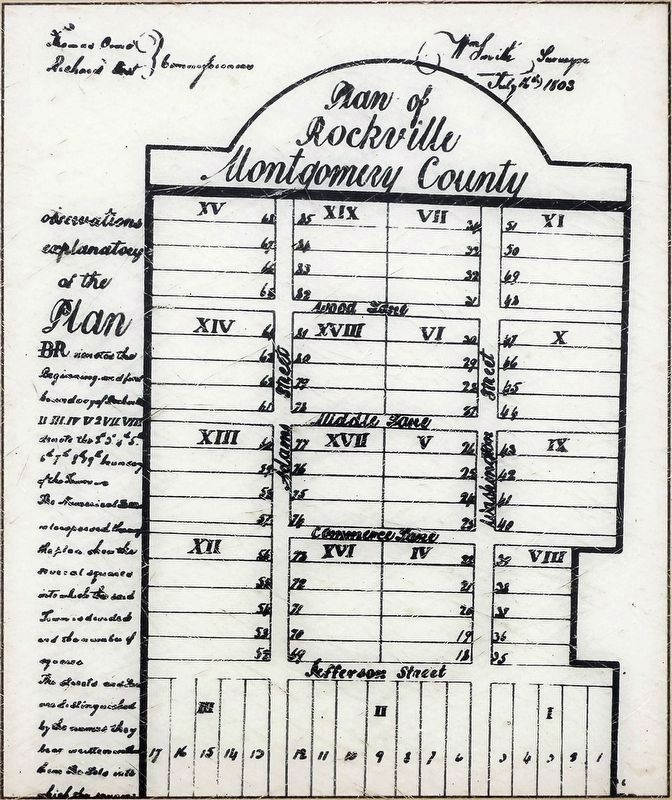 Thomas
Richard West } Commissioners
Wm Smith Surveyor
July 1803
Plan of
Rockville
Montgomery County
observations
explanatory
of the
Plan
BR denotes the
Beginning and first
boundary of
II III IV V VII VIII
denote the
6th 7th 8th 9th boundary
of the Town
The Numerical
interspersed through
the plan shew the
several squares
into which the said
Town is divided
and the number of
squares
The streets and
are distinguished
by the names they
bear
XV 68 85 XIX VII 34 51 XI
67 84 33 50
66 83 32 49
65 82 31 48
Wood Lane
XIV 64 81 XVIII VI 30 47 X
63 80 29 46
62 79 28 45
61 78 27 44
Middle Lane
XIII 60 77 XVII V 26 43 IX
59 76 25 42
58 75 24 41
57 74 23 40
Commerce Lane
XII 56 73 XVI IV 22 39 VIII
55 72 21 38
54 71 20 37
53 70 19 36
52 69 18 35
Adams Street
Washington Street
Jefferson Street
III II I
17 16 15 14 13 12 11 10 9 8 7 6 5 4 3 2 1